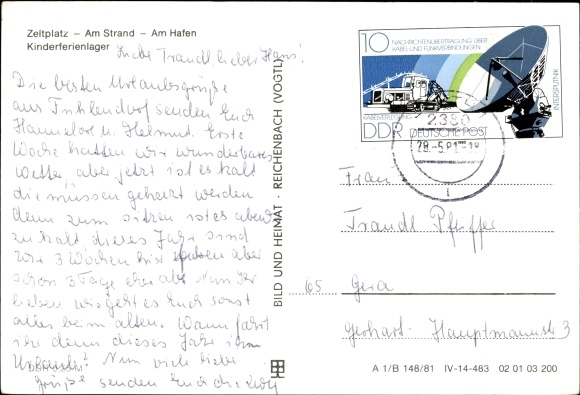 Zeltplatz – Am Strand – Am Hafen
Kinderferienlager
Liebe Traudl, lieber Hans!
Die besten Urlaubsgrüße
aus Fuhlendorf senden Euch
Hannelore u. Helmut. Erste
Woche hatten wir wunderbares
Wetter aber jetzt ist es kalt
müssen geheizt werden
denn zum sitzen ist es abends
zu kalt dieses Jahr sind
wir 3 Wochen hier aber
schon 3 Tage eher ab. Nun Ihr
lieben wie geht es Euch sonst
alles beim alten. Wann fahrt
ihr denn dieses Jahr in
Urlaub. Nun viele liebe
Grüße senden Euch die
BILD UND HEIMAT · REICHENBACH (VOGTL)
10 NACHRICHTENÜBERTRAGUNG ÜBER
KABEL-UND FUNKVERBINDUNGEN
INTERSPUTNIK
KABELVERLEGUNG
DDR DEUTSCHE POST
2380
28.-5.81-18
Frau
Traudl Pfeiffer
65 Gera
Gerhart-Hauptmannstr 3
A 1/B 148/81 IV-14-483 02 01 03 200